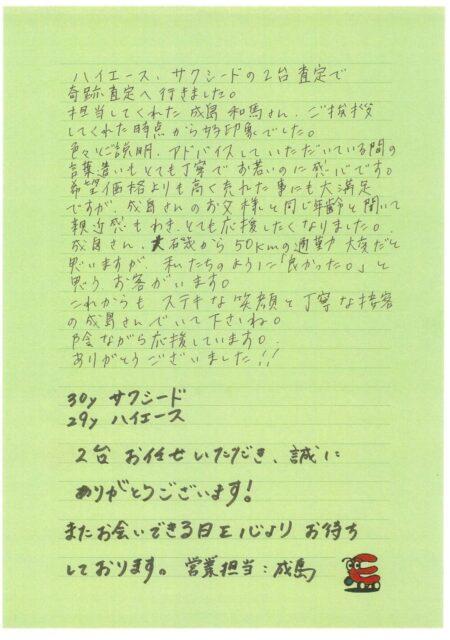 ハイエース、サクシードの2台査定で
奇跡査定へ行きました。
担当してくれた成島和馬さん、ご挨拶
してくれた時点から好印象でした。
色々とご説明、アドバイスしていただいている間の
言葉遣いもとても丁寧でお若いのに感心です。
希望価格よりも高く売れた事にも大満足
ですが、成島さんのお父様と同じ年齢と聞いて
親近感もわき、とても応援したくなりました。
成島さん、大石歳から50kmの通勤大変だと
思いますが 私たちのように「良かった。」と
思うお客がいます。
これからも ステキな笑顔と丁寧な接客
の成島さんでいて下さいね。
陰ながら応援しています。
ありがとうございました!!
30y サクシード
29y ハイエース
2台 お任せいただき、誠に
ありがとうございます!
またお会いできる日を心より お待ち
しております。営業担当:成島